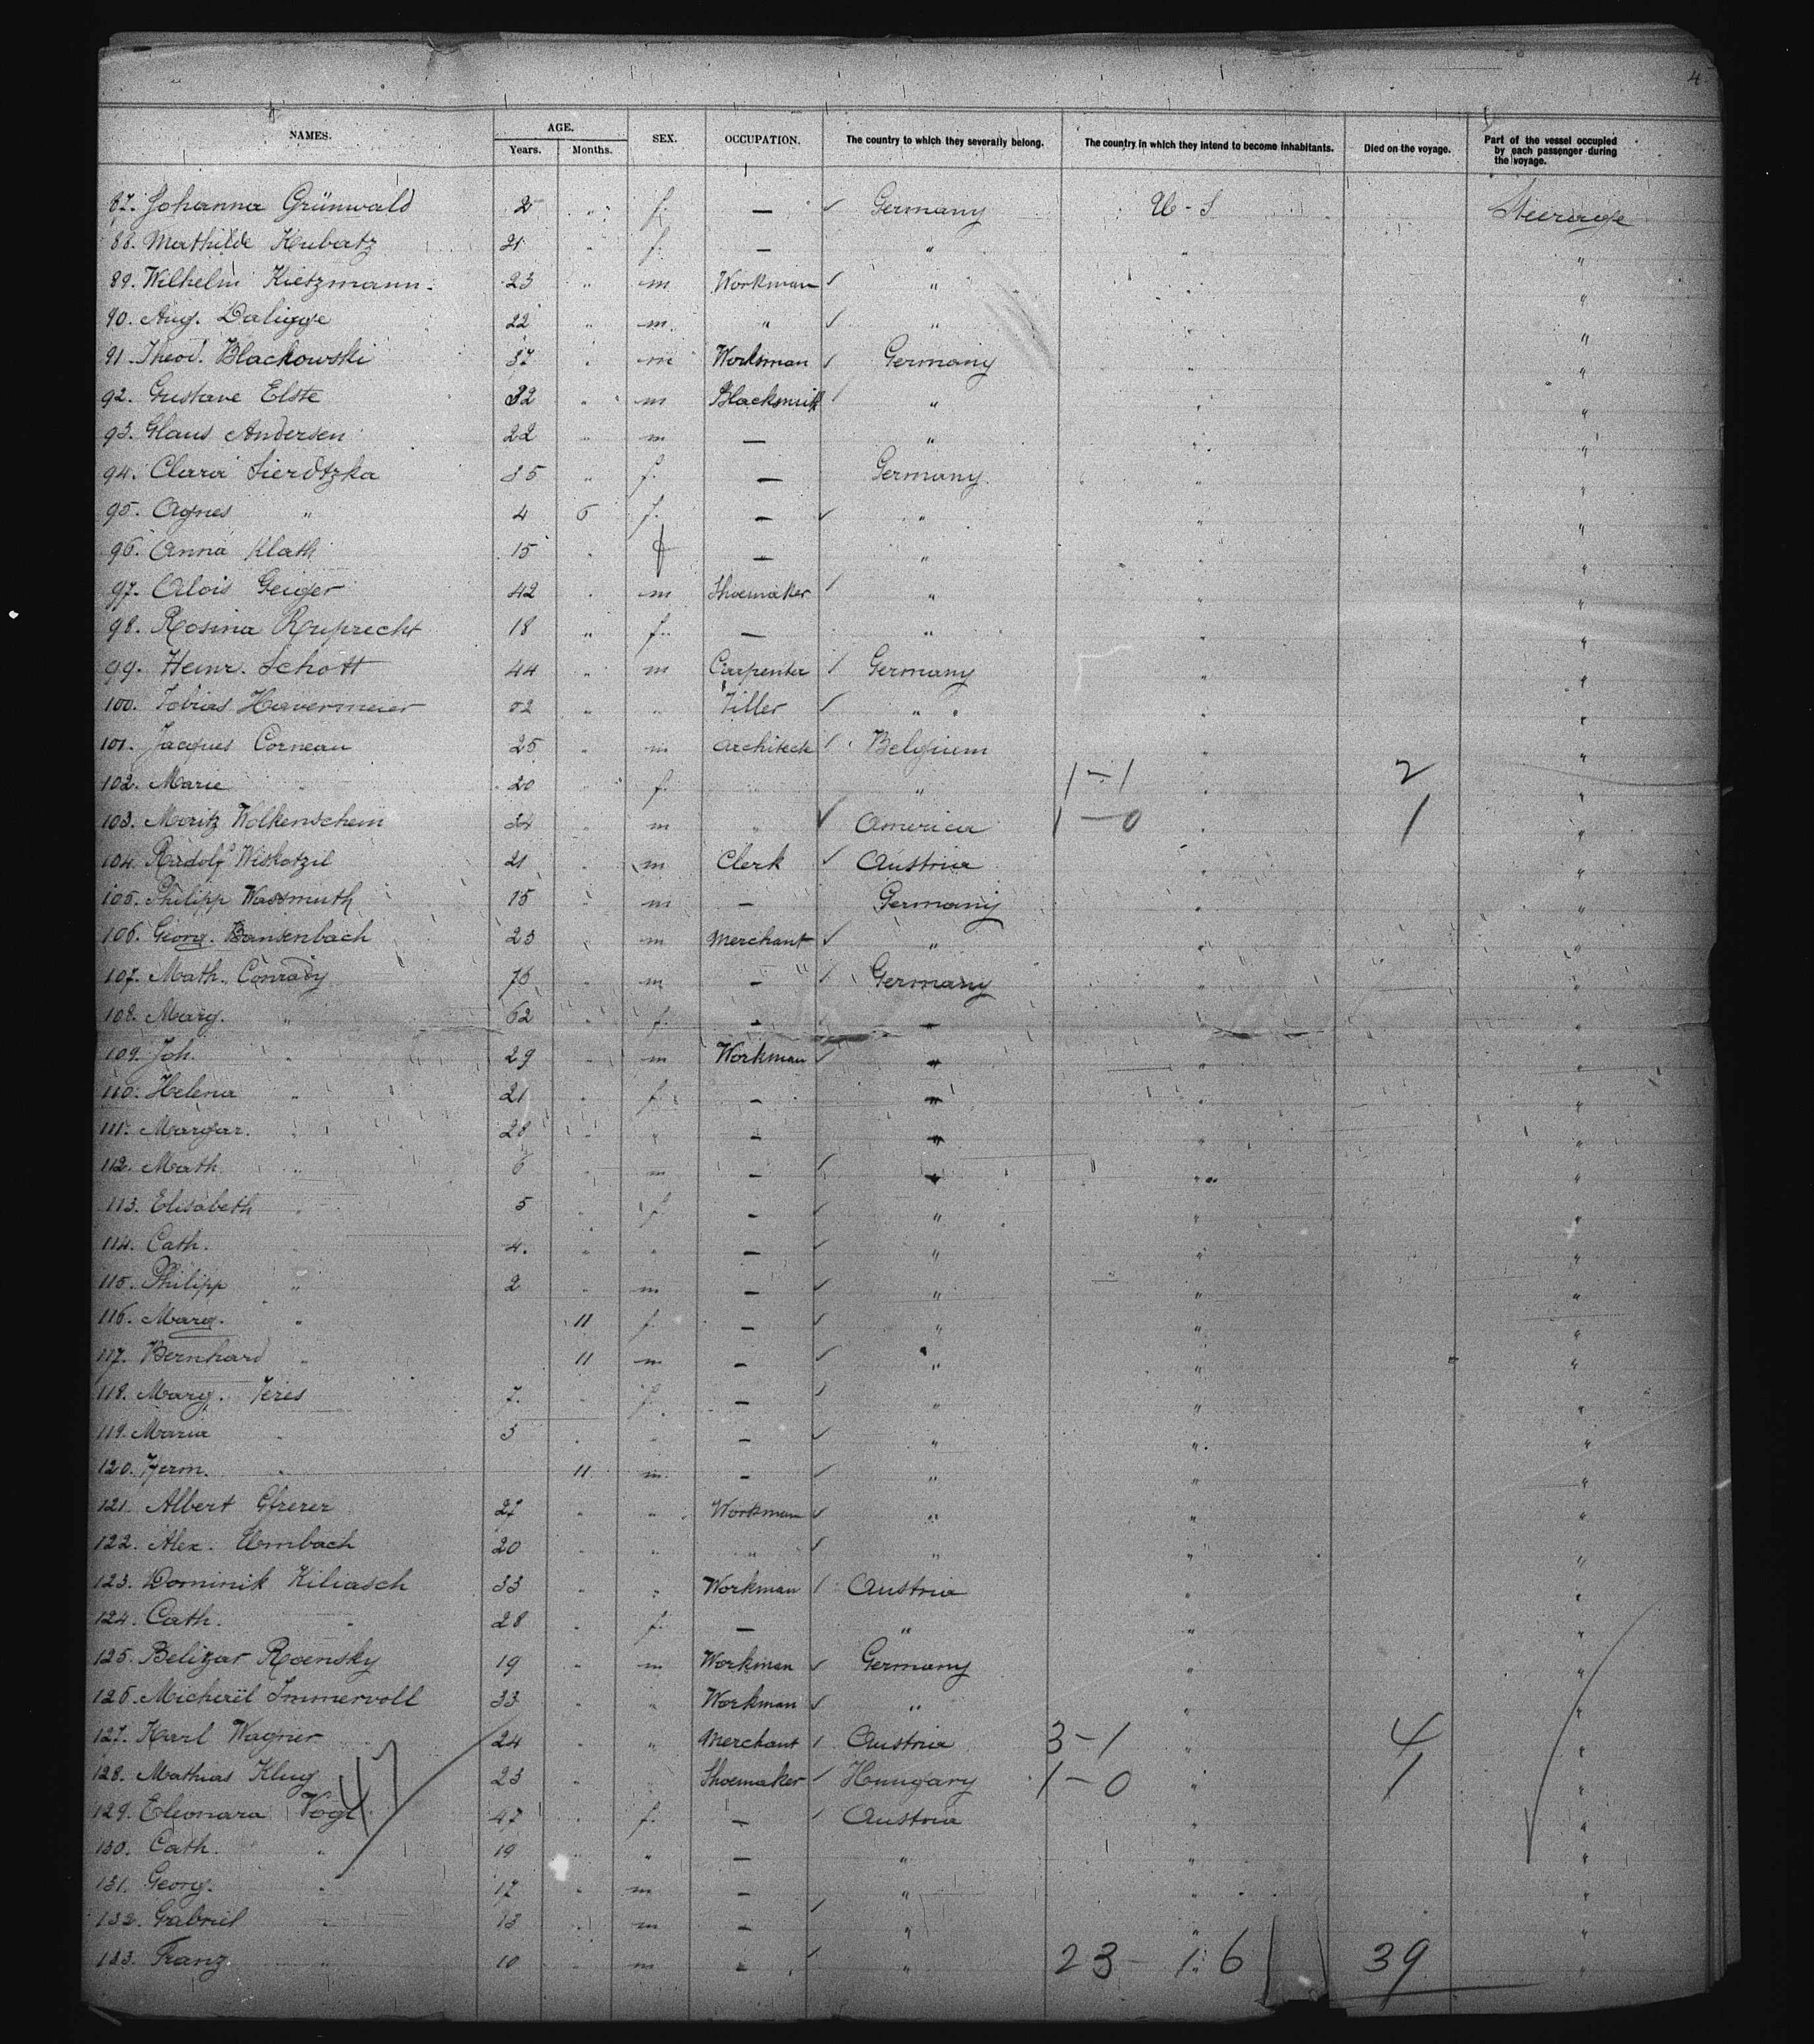 4
NAMES. AGE. Years. Months. SEX. OCCUPATION. The country to which they severally belong. The country in which they intend to become inhabitants. Died on the voyage. Part of the vessel occupied by each passenger during the voyage.
87. Johanna Grünwald 2 " f. — ✓ Germany U-S Steerage
88. Mathilde Hubatz 21 " f. — " " "
89. Wilhelm Kietzmann 23 " m Workman ✓ " " "
90. Aug. Daligge 22 " m " ✓ " " "
91. Theod. Blackowski 37 " m Workman ✓ Germany " "
92. Gustave Elste 32 " m Blacksmith ✓ " " "
93. Glaus Andersen 22 " m — " " "
94. Clara Sierdtzka 35 " f. — Germany " "
95. Agnes " 4 6 f. — ✓ " " "
96. Anna Klath 15 " f — " " "
97. Alois Geiger 42 " m Shoemaker ✓ " " "
98. Rosina Ruprecht 18 " f. — " " "
99. Heinr. Schott 44 " m Carpenter ✓ Germany " "
100. Tobias Havermeier " " Tiller ✓ " " "
101. Jacques Corneau 25 " m Architect ✓ Belgium " "
102. Marie " 20 " f. " " 1-1 " 2 "
103. Moritz Wolkenschein 34 " m " ✓ America 1-0 " 1 "
104. Rudolf Wiskotzil 21 " m Clerk ✓ Austria " "
105. Philipp Wassmuth 15 " m — Germany " "
106. Georg. Bansenbach 23 " m Merchant ✓ " " "
107. Math. Conrady " m — ✓ Germany " "
108. Marg. " 62 " f. — " " "
109. Joh. " 29 " m Workman ✓ " " "
110. Helena " 21 " f. — " " "
111. Margar. " 20 " " — " " "
112. Math. " 6 " m — ✓ " " "
113. Elisabeth " 5 " f — ✓ " " "
114. Cath. " 4. " " — ✓ " " "
115. Philipp " 2 " m — ✓ " " "
116. Marg. " 11 f. — ✓ " " "
117. Bernhard " 11 m — ✓ " " "
118. Marg. Jeres 7. " f. — ✓ " " "
119. Maria " 3 " " — ✓ " " "
120. Herm. " 11 m — ✓ " " "
121. Albert Gfrerer 27 " " Workman ✓ " " "
122. Alex. Umbach 20 " " " ✓ " " "
123. Dominik Kiliasch 33 " " Workman ✓ Austria " "
124. Cath. " 28 " f. — " " "
125. Belizar Roensky 19 " m Workman ✓ Germany " "
126. Michael Immervoll 33 " " Workman ✓ " " "
127. Karl Wagner 24 " " Merchant ✓ Austria 3-1 " 4 "
128. Mathias Klug 23 " " Shoemaker ✓ Hungary 1-0 " 1 "
129. Eleonara Vogl 47 " f. — ✓ Austria " "
47
130. Cath. " 19 " " — " " "
131. Georg. " 17 " m — " " "
132. Gabriel " 13 " m — ✓ " " "
133. Franz " 10 " m — ✓ " 23-16 39 "